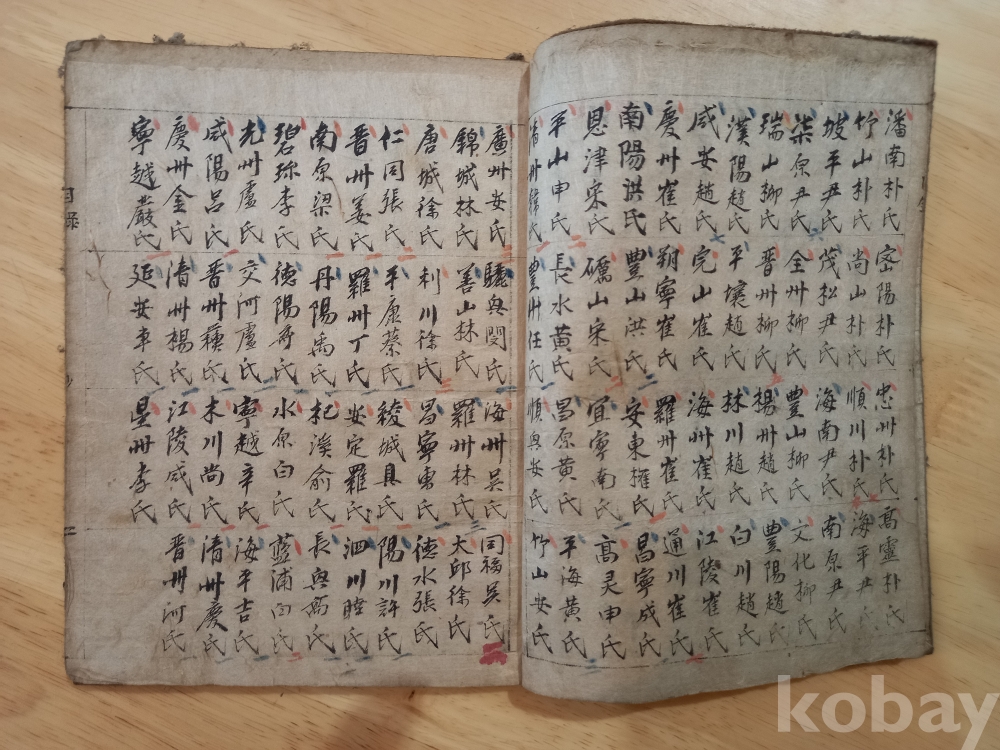 潘南朴氏 密陽朴氏 忠州朴氏 高靈朴氏
竹山朴氏 尚山朴氏 順川朴氏 海平尹氏
坡平尹氏 茂松尹氏 海南尹氏 南原尹氏
柒原尹氏 全州柳氏 豊山柳氏 文化柳氏
瑞山柳氏 晋州柳氏 楊州趙氏 豊陽趙氏
漢陽趙氏 平壤趙氏 林川趙氏 白川趙氏
咸安趙氏 完山崔氏 海州崔氏 江陵崔氏
慶州崔氏 朔寧崔氏 羅州崔氏 通川崔氏
南陽洪氏 豊山洪氏 安東權氏 昌寧成氏
恩津宋氏 礪山宋氏 宜寧南氏 高灵申氏
平山申氏 長水黃氏 昌原黃氏 平海黃氏
清州韓氏 豊川任氏 順興安氏 竹山安氏
廣州安氏 驪興閔氏 海州吳氏 同福吳氏
錦城林氏 善山林氏 羅州林氏 大邱徐氏
唐城徐氏 利川徐氏 昌寧曺氏 德水張氏
仁同張氏 平康蔡氏 綾城具氏 陽川許氏
晋州姜氏 羅州丁氏 安定羅氏 泗川睦氏
南原梁氏 丹陽禹氏 杞溪俞氏 長興高氏
碧珍李氏 德陽奇氏 水原白氏 藍浦白氏
光州盧氏 交河盧氏 寧越辛氏 海平吉氏
咸陽呂氏 晋州蘇氏 木川尚氏 清州慶氏
慶州金氏 清州楊氏 江陵咸氏 晋州河氏
寧越嚴氏 延安車氏 星州李氏
目錄
kobay